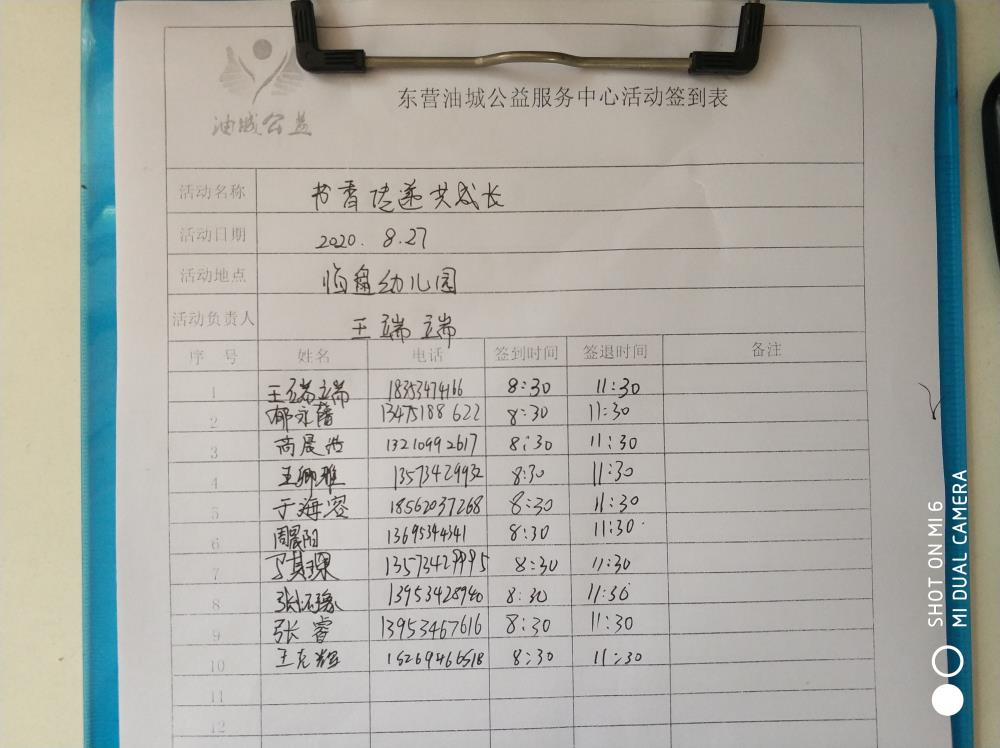 油城公益
东营油城公益服务中心活动签到表
活动名称 书香传递共成长
活动日期 2020. 8.27
活动地点 临盘幼儿园
活动负责人 王端端
序 号 姓名 电话 签到时间 签退时间 备注
1 王端端 18353474166 8:30 11:30
2 郁永馨 13475188622 8:30 11:30
3 尚晨浩 13210992617 8:30 11:30
4 王卿雅 13573429932 8:30 11:30
5 于海容 18562037268 8:30 11:30
6 周晨阳 13695344341 8:30 11:30
7 13573429995 8:30 11:30
8 13953428940 8:30 11:30
9 张睿 13953467616 8:30 11:30
10 王克辉 15269466518 8:30 11:30
11
12
SHOT ON MI 6
MI DUAL CAMERA